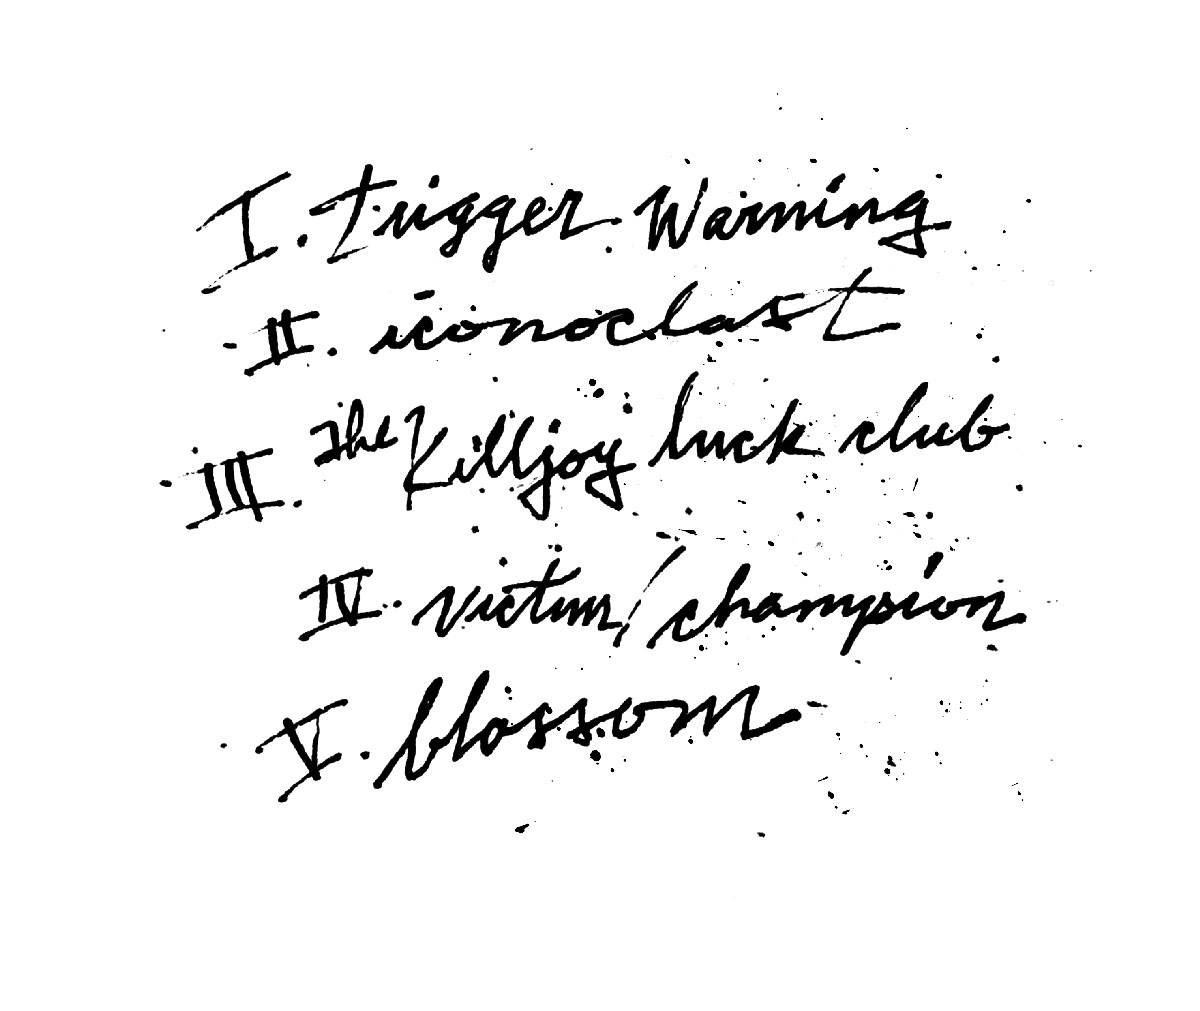 I. trigger Warning
II. iconoclast
III. the Killjoy luck club
IV. victim/champion
V. blossom